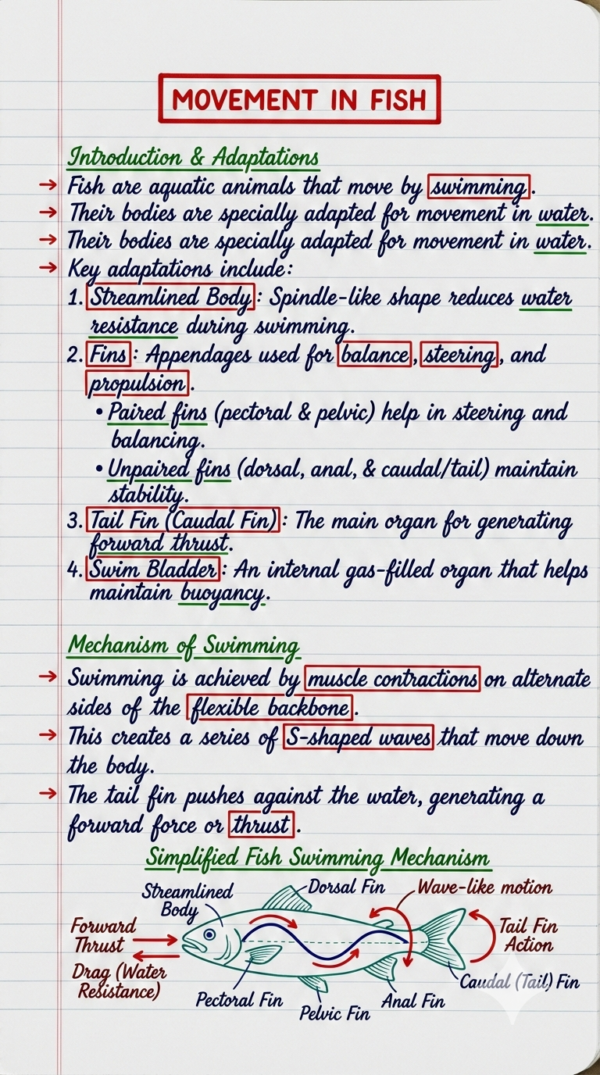 MOVEMENT IN FISH
Introduction & Adaptations
→ Fish are aquatic animals that move by swimming.
→ Their bodies are specially adapted for movement in water.
→ Their bodies are specially adapted for movement in water.
→ Key adaptations include:
1. Streamlined Body: Spindle-like shape reduces water
resistance during swimming.
2. Fins: Appendages used for balance, steering, and
propulsion.
• Paired fins (pectoral & pelvic) help in steering and
balancing.
• Unpaired fins (dorsal, anal, & caudal/tail) maintain
stability.
3. Tail Fin (Caudal Fin): The main organ for generating
forward thrust.
4. Swim Bladder: An internal gas-filled organ that helps
maintain buoyancy.
Mechanism of Swimming
→ Swimming is achieved by muscle contractions on alternate
sides of the flexible backbone.
→ This creates a series of S-shaped waves that move down
the body.
→ The tail fin pushes against the water, generating a
forward force or thrust.
Simplified Fish Swimming Mechanism
Streamlined
Body
Dorsal Fin
Wave-like motion
Forward
Thrust
Tail Fin
Action
Drag (Water
Resistance)
Caudal (Tail) Fin
Pectoral Fin
Pelvic Fin
Anal Fin